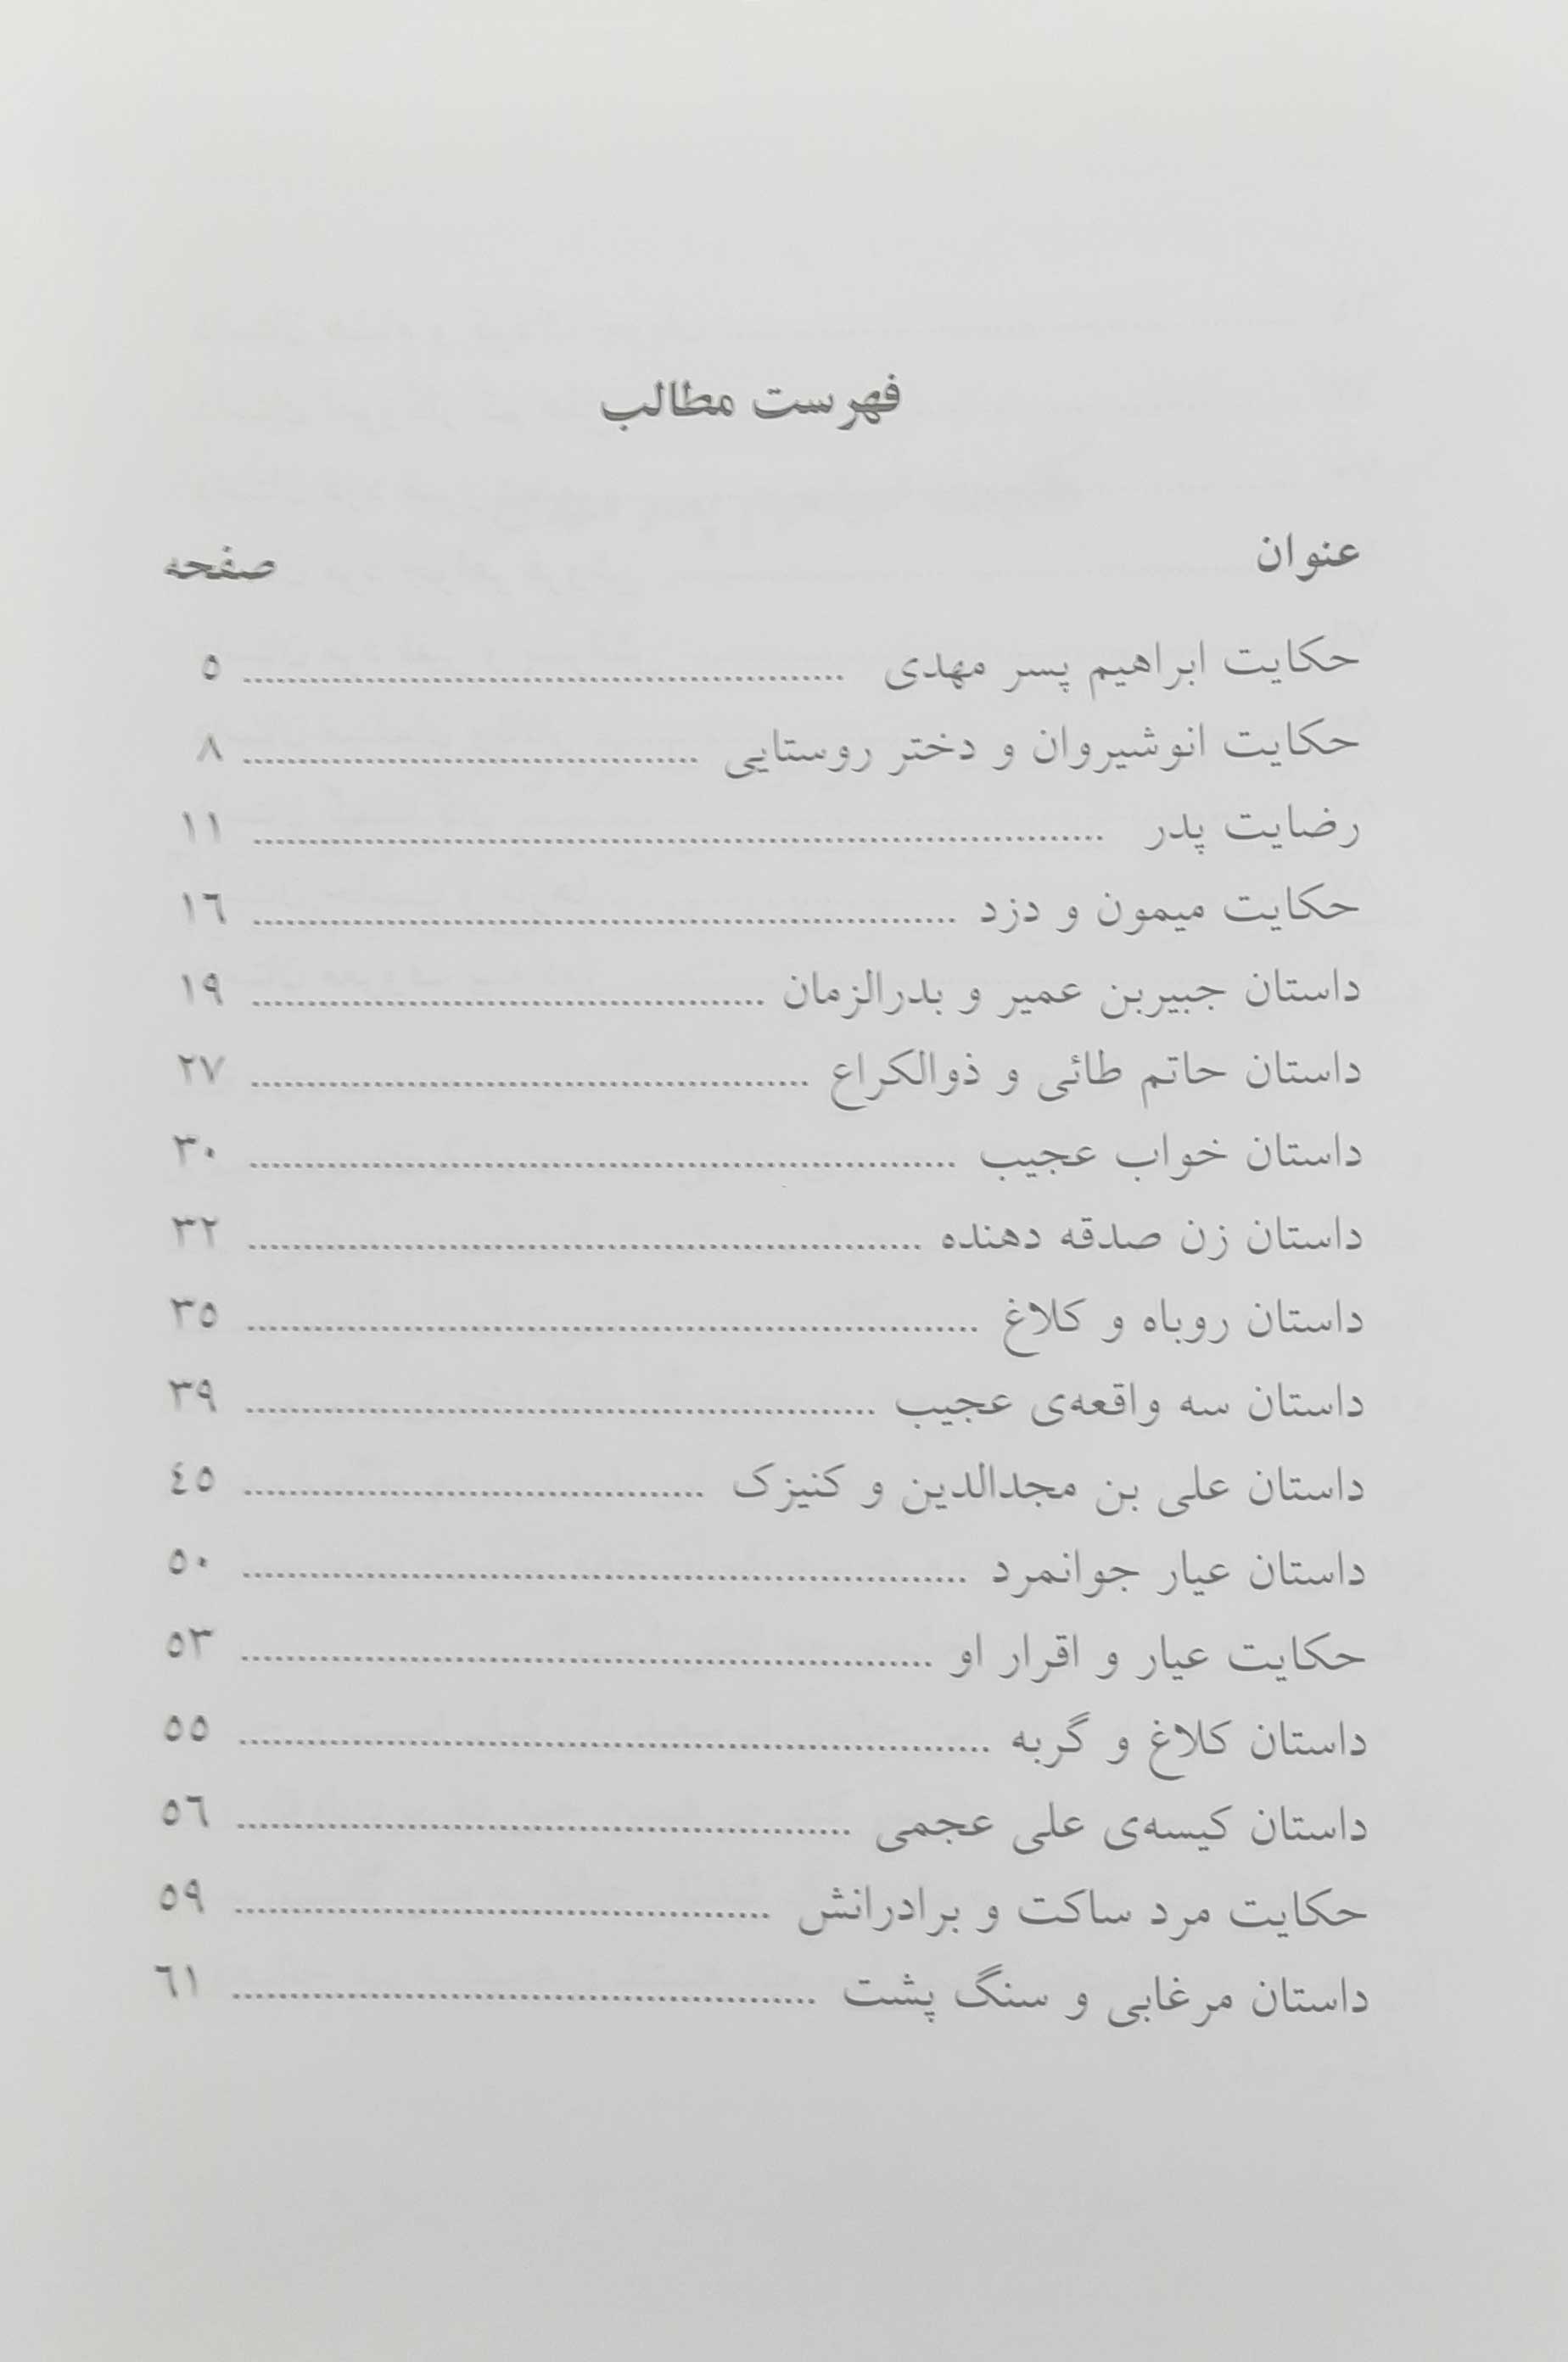 فهرست مطالب
عنوان صفحه
حکایت ابراهیم پسر مهدی ........ ٥
حکایت انوشیروان و دختر روستایی ........ ٨
رضایت پدر ........ ١١
حکایت میمون و دزد ........ ١٦
داستان جبیربن عمیر و بدرالزمان ........ ١٩
داستان حاتم طائی و ذوالکراع ........ ٢٧
داستان خواب عجیب ........ ٣٠
داستان زن صدقه دهنده ........ ٣٢
داستان روباه و کلاغ ........ ٣٥
داستان سه واقعه‌ی عجیب ........ ٣٩
داستان علی بن مجدالدین و کنیزک ........ ٤٥
داستان عیار جوانمرد ........ ٥٠
حکایت عیار و اقرار او ........ ٥٣
داستان کلاغ و گربه ........ ٥٥
داستان کیسه‌ی علی عجمی ........ ٥٦
حکایت مرد ساکت و برادرانش ........ ٥٩
داستان مرغابی و سنگ پشت ........ ٦١